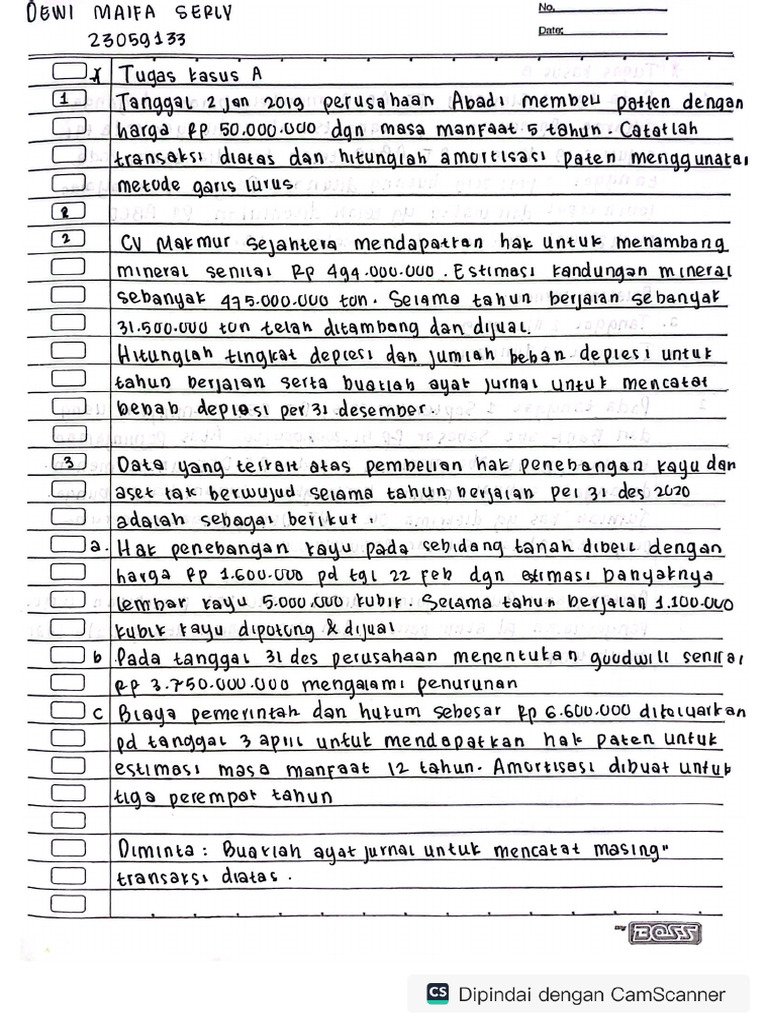 DEWI MAIFA SERLY
23059133
No.
Date:
* Tugas kasus A
1 Tanggal 2 Jan 2019 perusahaan Abadi membeli patten dengan
harga Rp 50.000.000 dgn masa manfaat 5 tahun. Catatlah
transaksi diatas dan hitunglah amortisasi paten menggunakan
metode garis lurus.
2
2 CV Makmur Sejahtera mendapatkan hak untuk menambang
mineral senilai Rp 494.000.000. Estimasi kandungan mineral
sebanyak 475.000.000 ton. Selama tahun berjalan sebanyak
31.500.000 ton telah ditambang dan dijual.
Hitunglah tingkat deplesi dan jumlah beban deplesi untuk
tahun berjalan serta buatlah ayat jurnal untuk mencatat
bebab deplesi per 31 desember.
3 Data yang terkait atas pembelian hak penebangan kayu dan
aset tak berwujud selama tahun berjalan per 31 des 2020
adalah sebagai berikut.
a. Hak penebangan kayu pada sebidang tanah dibeli dengan
harga Rp 1.600.000 pd tgl 22 Feb dgn estimasi banyaknya
lembar kayu 5.000.000 kubik. Selama tahun berjalan 1.100.000
kubik kayu dipotong & dijual
b Pada tanggal 31 des perusahaan menentukan goodwill senilai
Rp 3.750.000.000 mengalami penurunan
c Biaya pemerintah dan hukum sebesar Rp 6.600.000 dikeluarkan
pd tanggal 3 april untuk mendapatkan hak paten untuk
estimasi masa manfaat 12 tahun. Amortisasi dibuat untuk
tiga perempat tahun
Diminta : Buatlah ayat jurnal untuk mencatat masing"
transaksi diatas.
my BOSS
CS Dipindai dengan CamScanner